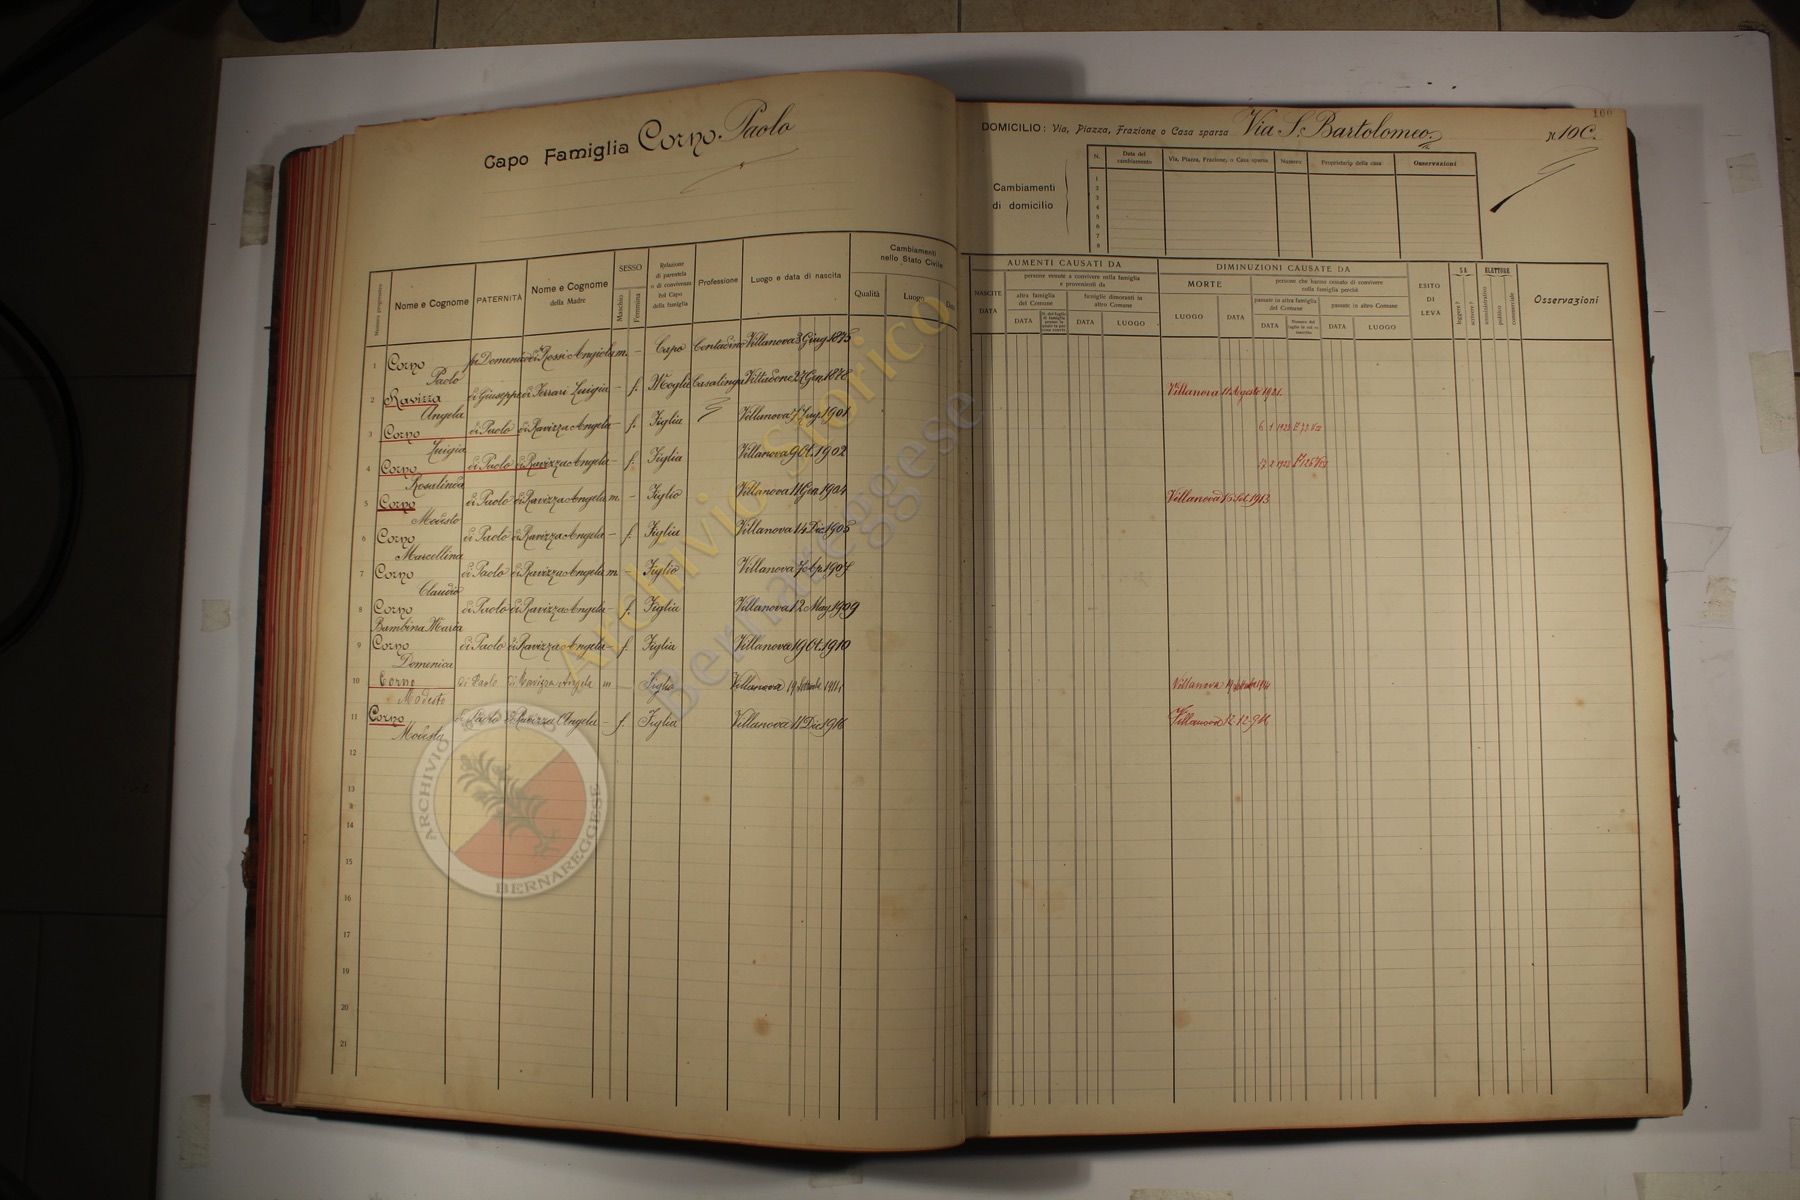 Capo Famiglia Corno Paolo
DOMICILIO: Via, Piazza, Frazione o Casa sparsa Via S. Bartolomeo N. 10 C.
100
Cambiamenti
di domicilio
N. Data del cambiamento Via, Piazza, Frazione, o Casa sparsa Numero Proprietario della casa Osservazioni
1
2
3
4
5
6
7
8
Numero progressivo Nome e Cognome PATERNITÀ Nome e Cognome della Madre SESSO Maschio Femmina Relazione di parentela o di convivenza col Capo della famiglia Professione Luogo e data di nascita Cambiamenti nello Stato Civile Qualità Luogo Data
NASCITE DATA AUMENTI CAUSATI DA persone venute a convivere nella famiglia e provenienti da altra famiglia del Comune DATA famiglie dimoranti in altro Comune DATA LUOGO
DIMINUZIONI CAUSATE DA MORTE LUOGO DATA persone che hanno cessato di convivere nella famiglia perchè passate in altra famiglia del Comune DATA passate in altro Comune DATA LUOGO
ESITO DI LEVA SA leggere? scrivere? ELETTORE amministrativo politico commerciale Osservazioni
1 Corno Paolo fu Domenico di Rossi Angiola m. – Capo Contadino Villanova 3 Giug. 1875
2 Ravizza Angela di Giuseppe di Ferrari Luigia – f. Moglie Casalinga 27 Gen. 1878 Villanova 11 Agosto 1921
3 Corno Luigia di Paolo di Ravizza Angela – f. Figlia Villanova 1901 6 1 1923
4 Corno Rosalinda di Paolo di Ravizza Angela – f. Figlia Villanova 9 Ott. 1902
5 Corno Modesto di Paolo di Ravizza Angela m. – Figlio Villanova 11 Gen. 1904 Villanova 15 Set. 1913
6 Corno Marcellina di Paolo di Ravizza Angela – f. Figlia Villanova 14 Dic. 1905
7 Corno Claudio di Paolo di Ravizza Angela m. Figlio Villanova 1907
8 Corno Bambina Maria di Paolo di Ravizza Angela – f. Figlia Villanova 12 Mag. 1909
9 Corno Domenica di Paolo di Ravizza Angela – f. Figlia Villanova 19 Ott. 1910
10 Corno Modesto di Paolo di Ravizza Angela m Figlio Villanova 19 Settembre 1914 Villanova 19 settembre 1914
11 Corno Modesta di Paolo di Ravizza Angela – f. Figlia Villanova 11 Dic. 1916 Villanova 12.12.916
12
13
14
15
16
17
18
19
20
21
Archivio Storico
Bernareggese
ARCHIVIO STORICO
BERNAREGGESE